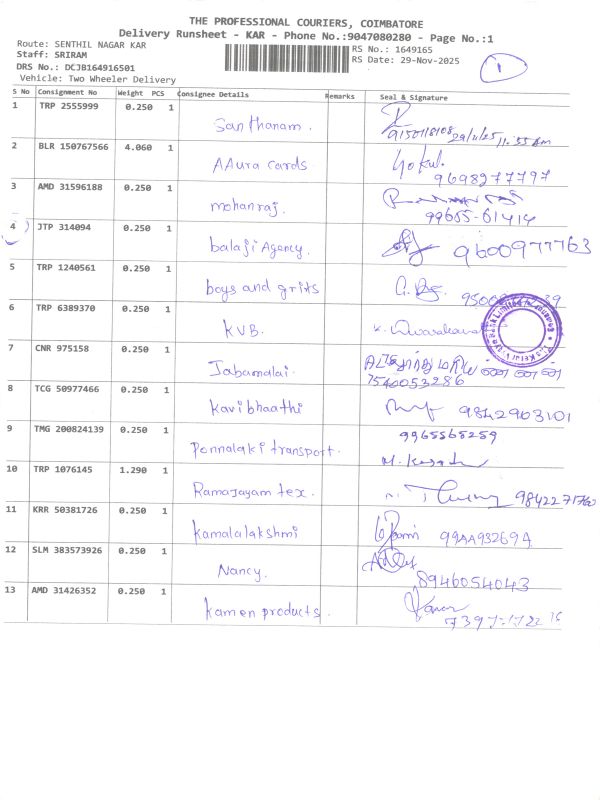 THE PROFESSIONAL COURIERS, COIMBATORE
Delivery Runsheet - KAR - Phone No.:9047080280 - Page No.:1
Route: SENTHIL NAGAR KAR
Staff: SRIRAM
DRS No.: DCJB164916501
Vehicle: Two Wheeler Delivery
RS No.: 1649165
RS Date: 29-Nov-2025
1
S No Consignment No Weight PCS Consignee Details Remarks Seal & Signature
1 TRP 2555999 0.250 1 Santhanam. 9150118108 29/11/25 11.55 Am
2 BLR 150767566 4.060 1 AAura cards Gokul. 9698977797
3 AMD 31596188 0.250 1 mohanraj. 99655-61414
4 JTP 314094 0.250 1 balaji Agency. 9600977763
5 TRP 1240561 0.250 1 boys and grits
6 TRP 6389370 0.250 1 KVB.
7 CNR 975158 0.250 1 Jabamalai. 7540053286
8 TCG 50977466 0.250 1 Kavibhaathi 9842903101
9 TMG 200824139 0.250 1 Ponnalaki transport. 9965568259
10 TRP 1076145 1.290 1 Ramajayam tex.
11 KRR 50381726 0.250 1 Kamalalakshmi 99AA932694
12 SLM 383573926 0.250 1 Nancy. 8946054043
13 AMD 31426352 0.250 1 Kamen products.